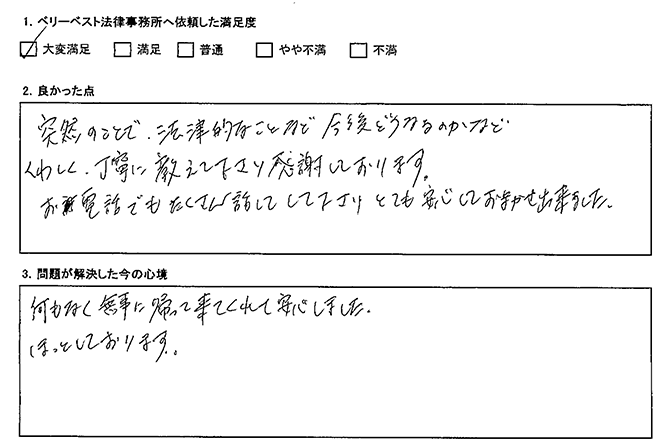 1. ベリーベスト法律事務所へ依頼した満足度
☑ 大変満足 □ 満足 □ 普通 □ やや不満 □ 不満
2. 良かった点
突然のことで、法律的なことなど今後どうなるのかなど
くわしく、丁寧に教えて下さり感謝しております。
お電話でもたくさん話してして下さりとても安心しておまかせ出来ました。
3. 問題が解決した今の心境
何もなく無事に帰って来てくれて安心しました。
ほっとしております。